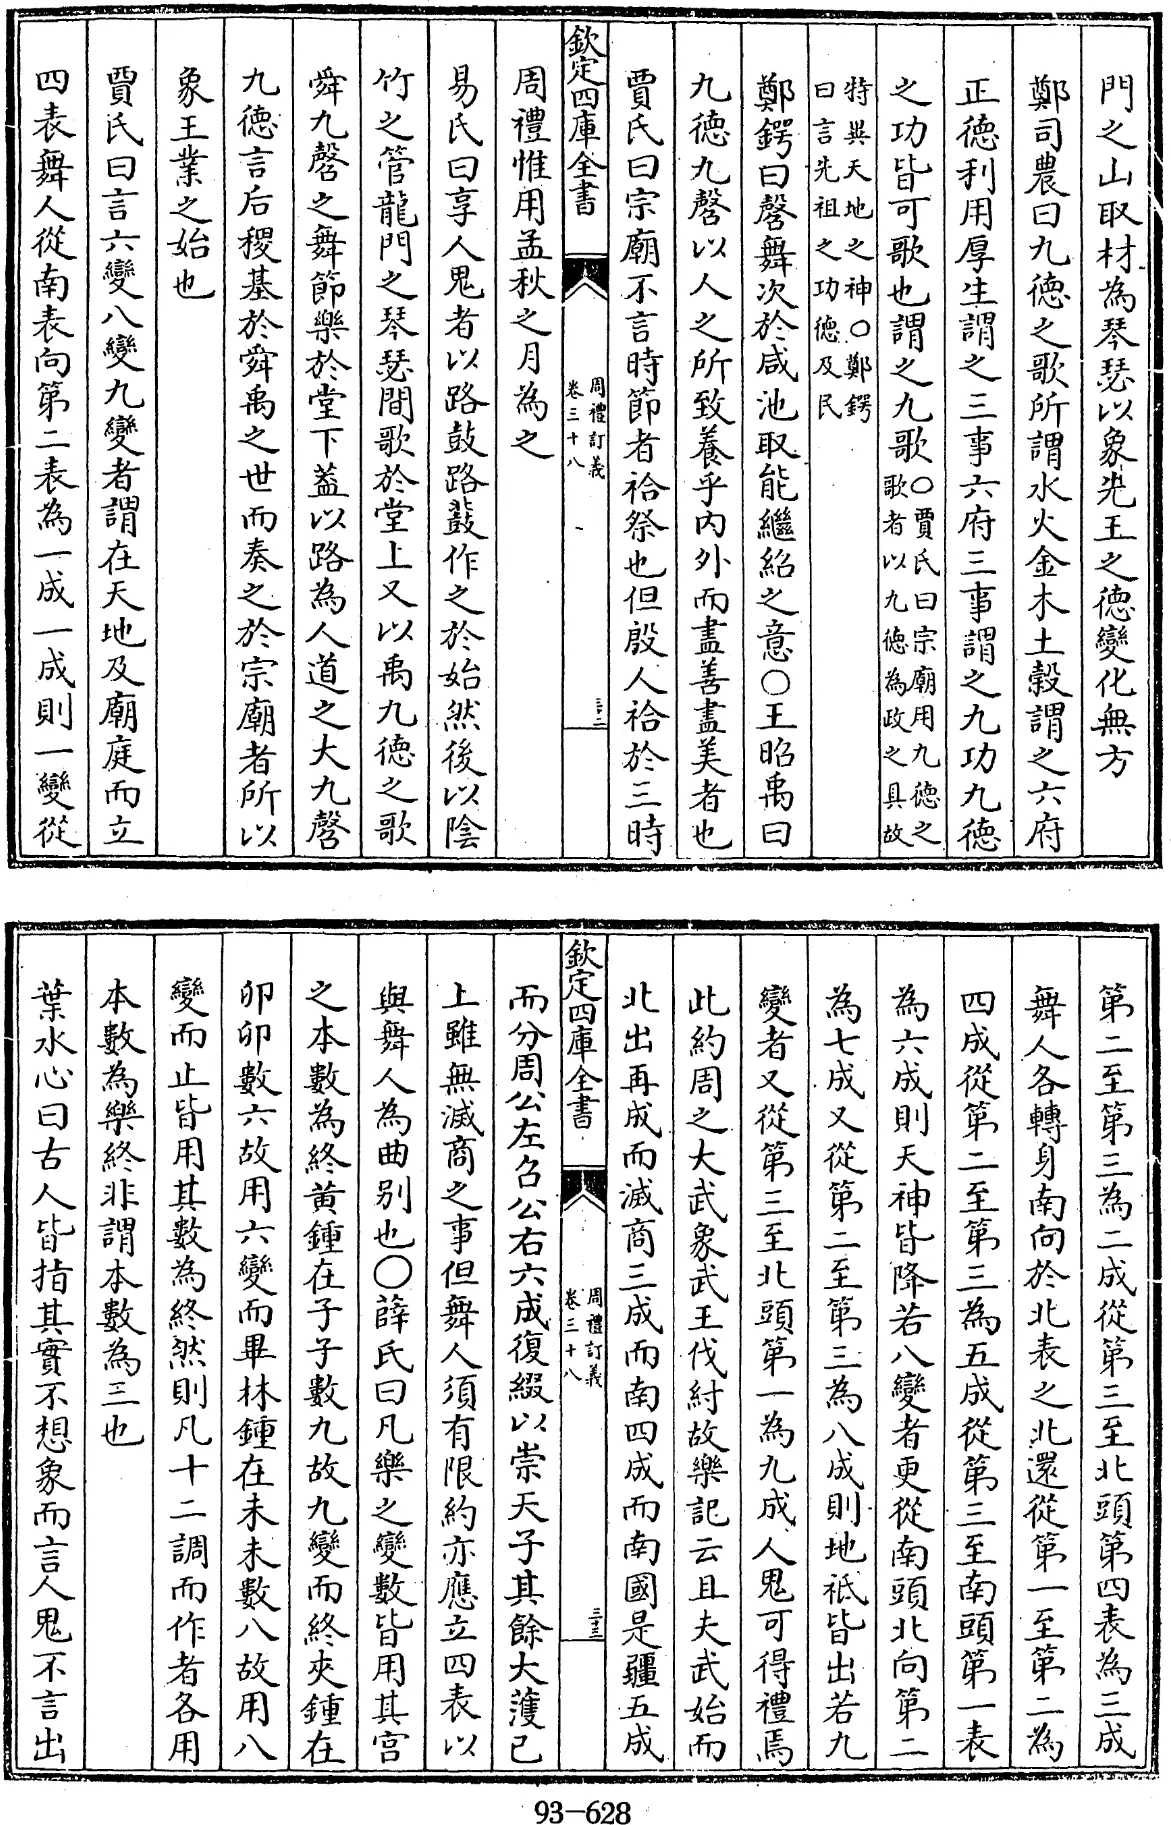 門之山取材為琴瑟以象先王之德變化無方
鄭司農曰九德之歌所謂水火金木土穀謂之六府
正德利用厚生謂之三事六府三事謂之九功九德
之功皆可歌也謂之九歌○賈氏曰宗廟用九德之
歌者以九德為政之具故
特異天地之神○鄭鍔
曰言先祖之功德及民
鄭鍔曰磬舞次於咸池取能繼紹之意○王昭禹曰
九德九磬以人之所致養乎内外而盡善盡美者也
賈氏曰宗廟不言時節者祫祭也但殷人祫於三時
欽定四庫全書
周禮訂義
卷三十八
三二
周禮惟用孟秋之月為之
易氏曰享人鬼者以路鼓路鼗作之於始然後以陰
竹之管龍門之琴瑟間歌於堂上又以禹九德之歌
舜九磬之舞節樂於堂下葢以路為人道之大九磬
九德言后稷基於舜禹之世而奏之於宗廟者所以
象王業之始也
賈氏曰言六變八變九變者謂在天地及廟庭而立
四表舞人從南表向第二表為一成一成則一變從
第二至第三為二成從第三至北頭第四表為三成
舞人各轉身南向於北表之北還從第一至第二為
四成從第二至第三為五成從第三至南頭第一表
為六成則天神皆降若八變者更從南頭北向第二
為七成又從第二至第三為八成則地祗皆出若九
變者又從第三至北頭第一為九成人鬼可得禮焉
此約周之大武象武王伐紂故樂記云且夫武始而
北出再成而滅商三成而南四成而南國是疆五成
欽定四庫全書
周禮訂義
卷三十八
三三
而分周公左召公右六成復綴以崇天子其餘大濩已
上雖無滅商之事但舞人須有限約亦應立四表以
與舞人為曲别也○薛氏曰凡樂之變數皆用其宫
之本數為終黄鍾在子子數九故九變而終夾鍾在
卯卯數六故用六變而畢林鍾在未未數八故用八
變而止皆用其數為終然則凡十二調而作者各用
本數為樂終非謂本數為三也
葉水心曰古人皆指其實不想象而言人鬼不言出
93-628